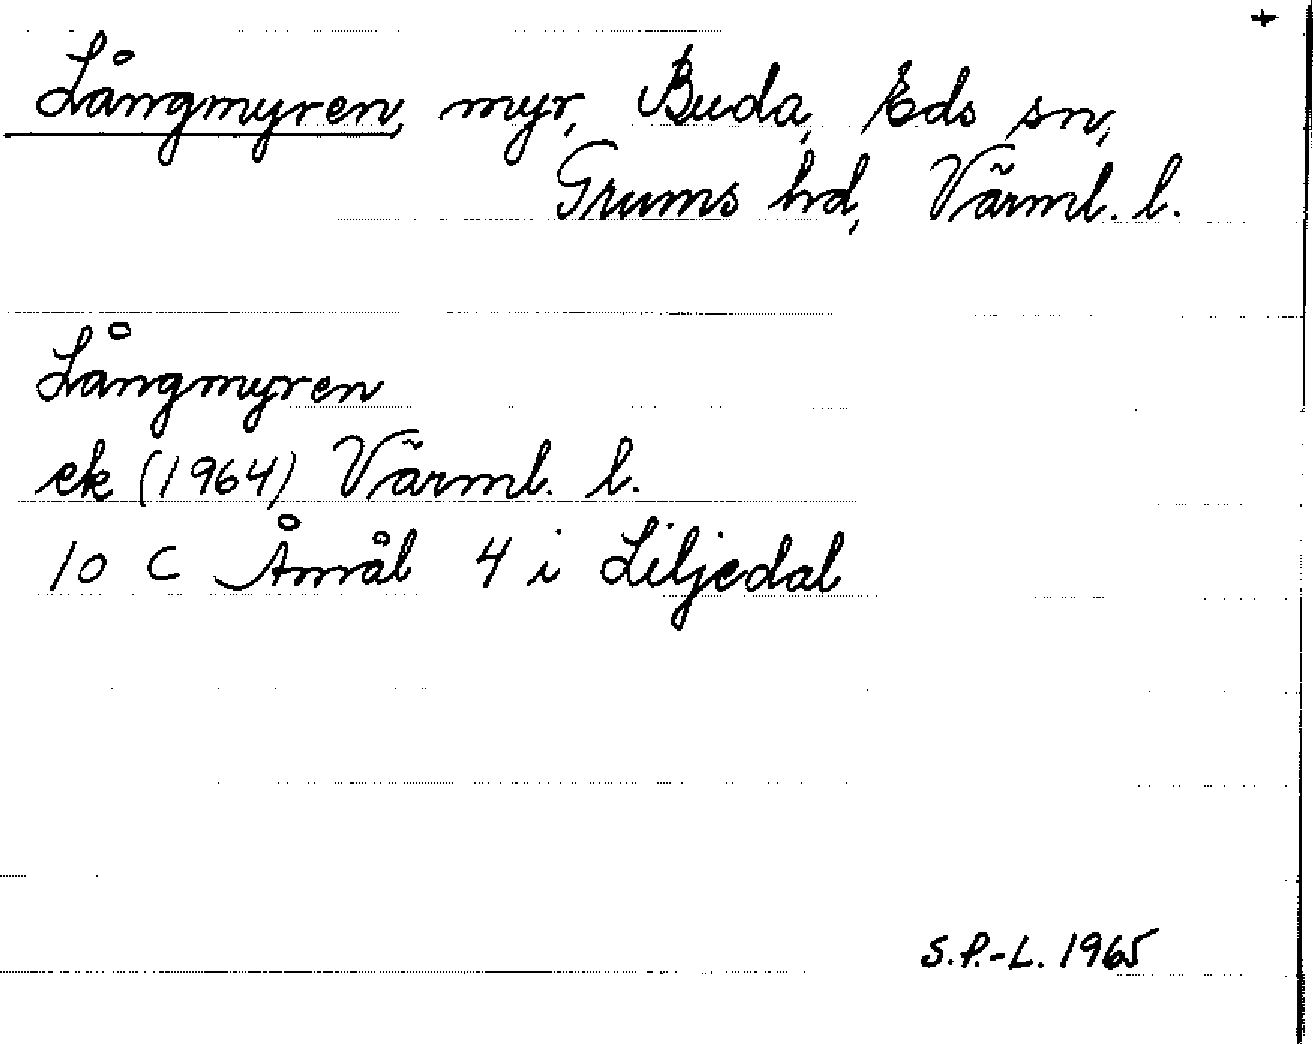 +
Långmyren, myr, Buda, Eds sn,
Grums hd, Värml. l.
Långmyren
ek (1964) Värml. l.
10 C Åmål 4 i Liljedal
S.P.-L. 1965